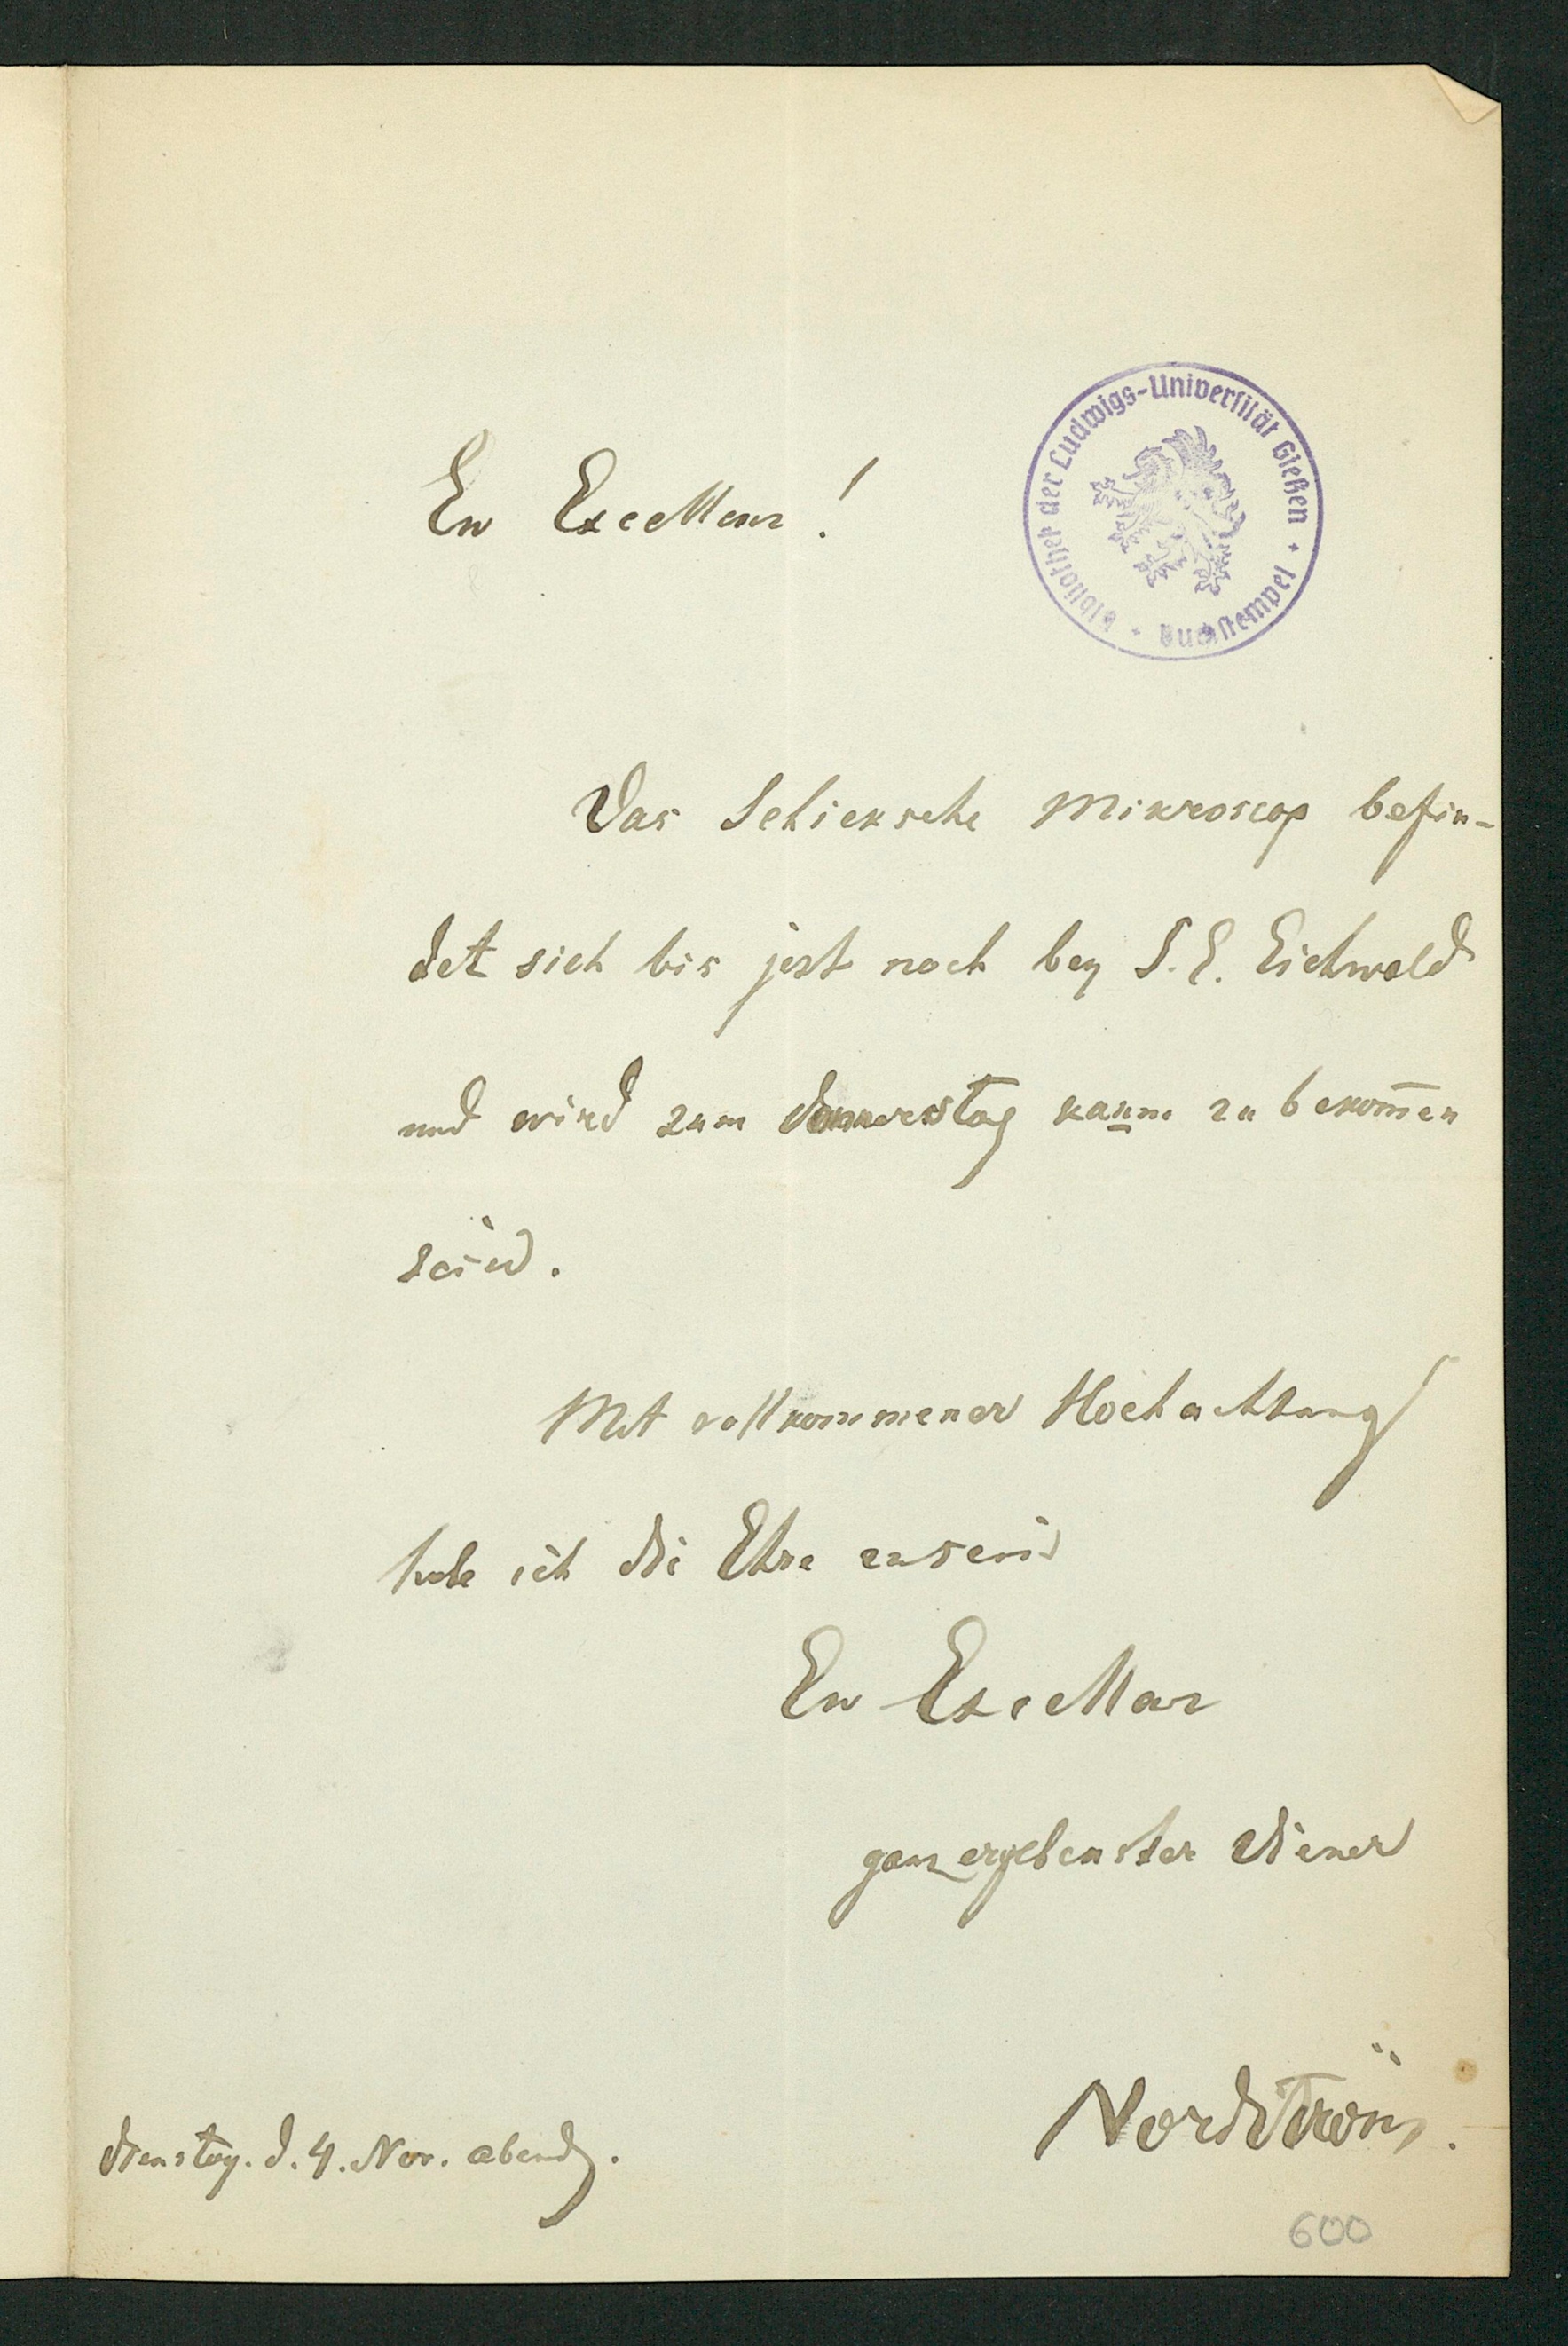 Ew Excellenz!
Bibliothek der Ludwigs-Universität Gießen * Buchstempel *
Das Schieksche Mikroscop befin-
det sich bis jezt noch bey S. E. Eichwald
und wird zum Donnerstag kaum zu bekom̅en
sein.
Mit vollkommener Hochachtung
habe ich die Ehre zu sein
Ew Excellenz
ganz ergebenster Diener
Nordström.
Dienstag. d. 4. Nov. abends.
600